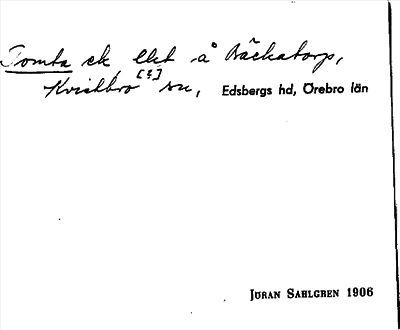 Tomta ek Elit å Bäckatorp,
Kvistbro [?] sn, Edsbergs hd, Örebro län
JÖRAN SAHLGREN 1906